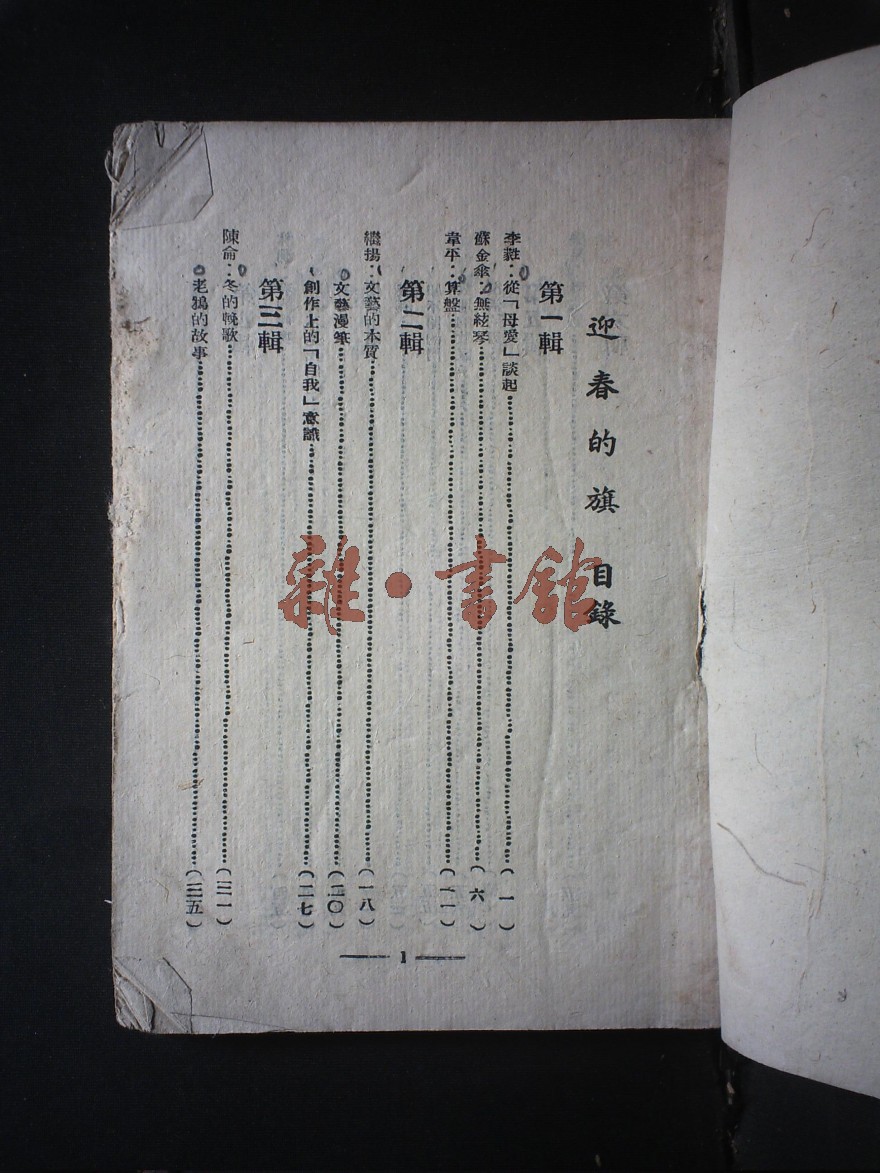 迎春的旗 目錄
第一輯
李蕤：從「母愛」談起……(一)
蘇金傘：無絃琴……(六)
韋平：算盤……(一一)
第二輯
繼揚：文藝的本質……(一八)
文藝漫筆……(二〇)
創作上的「自我」意識……(二七)
第三輯
陳侖：冬的輓歌……(三一)
老鴉的故事……(三五)
1
雜·書館